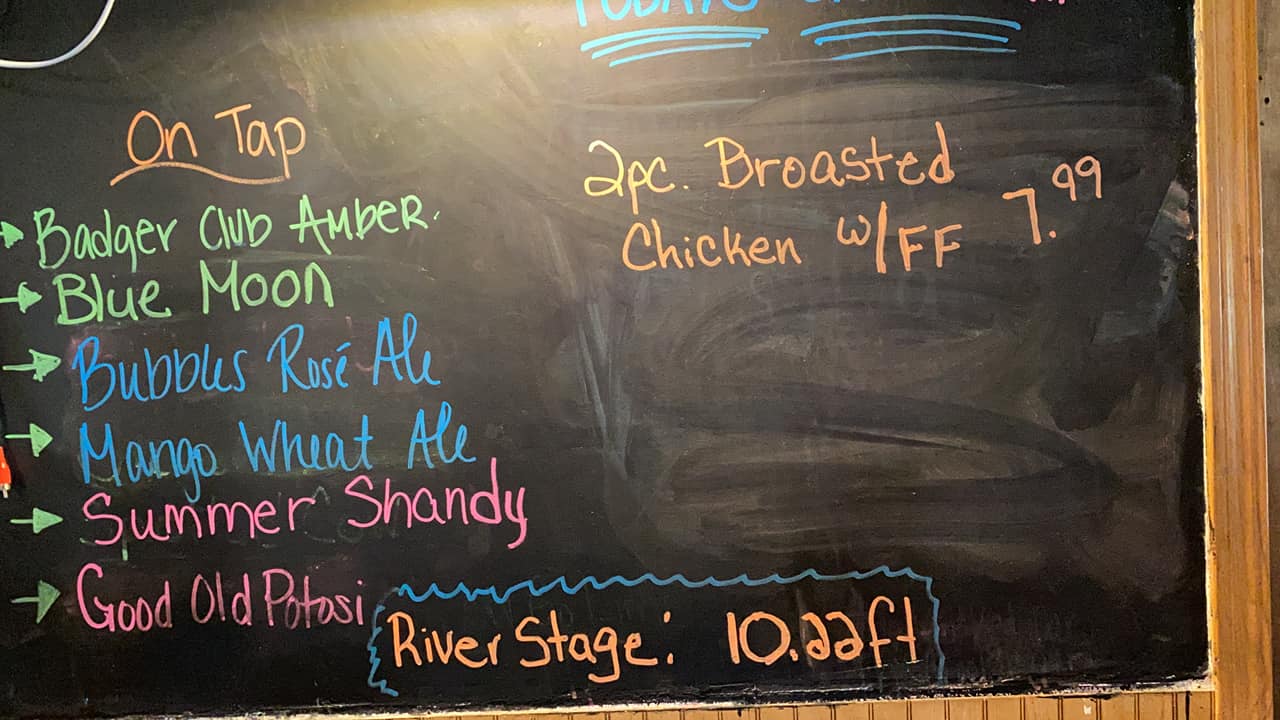 TODAY'S
On Tap
Badger Club Amber.
Blue Moon
Bubbles Rosé Ale
Mango Wheat Ale
Summer Shandy
Good Old Potosi
2pc. Broasted
Chicken w/FF 7.99
River Stage: 10.22ft